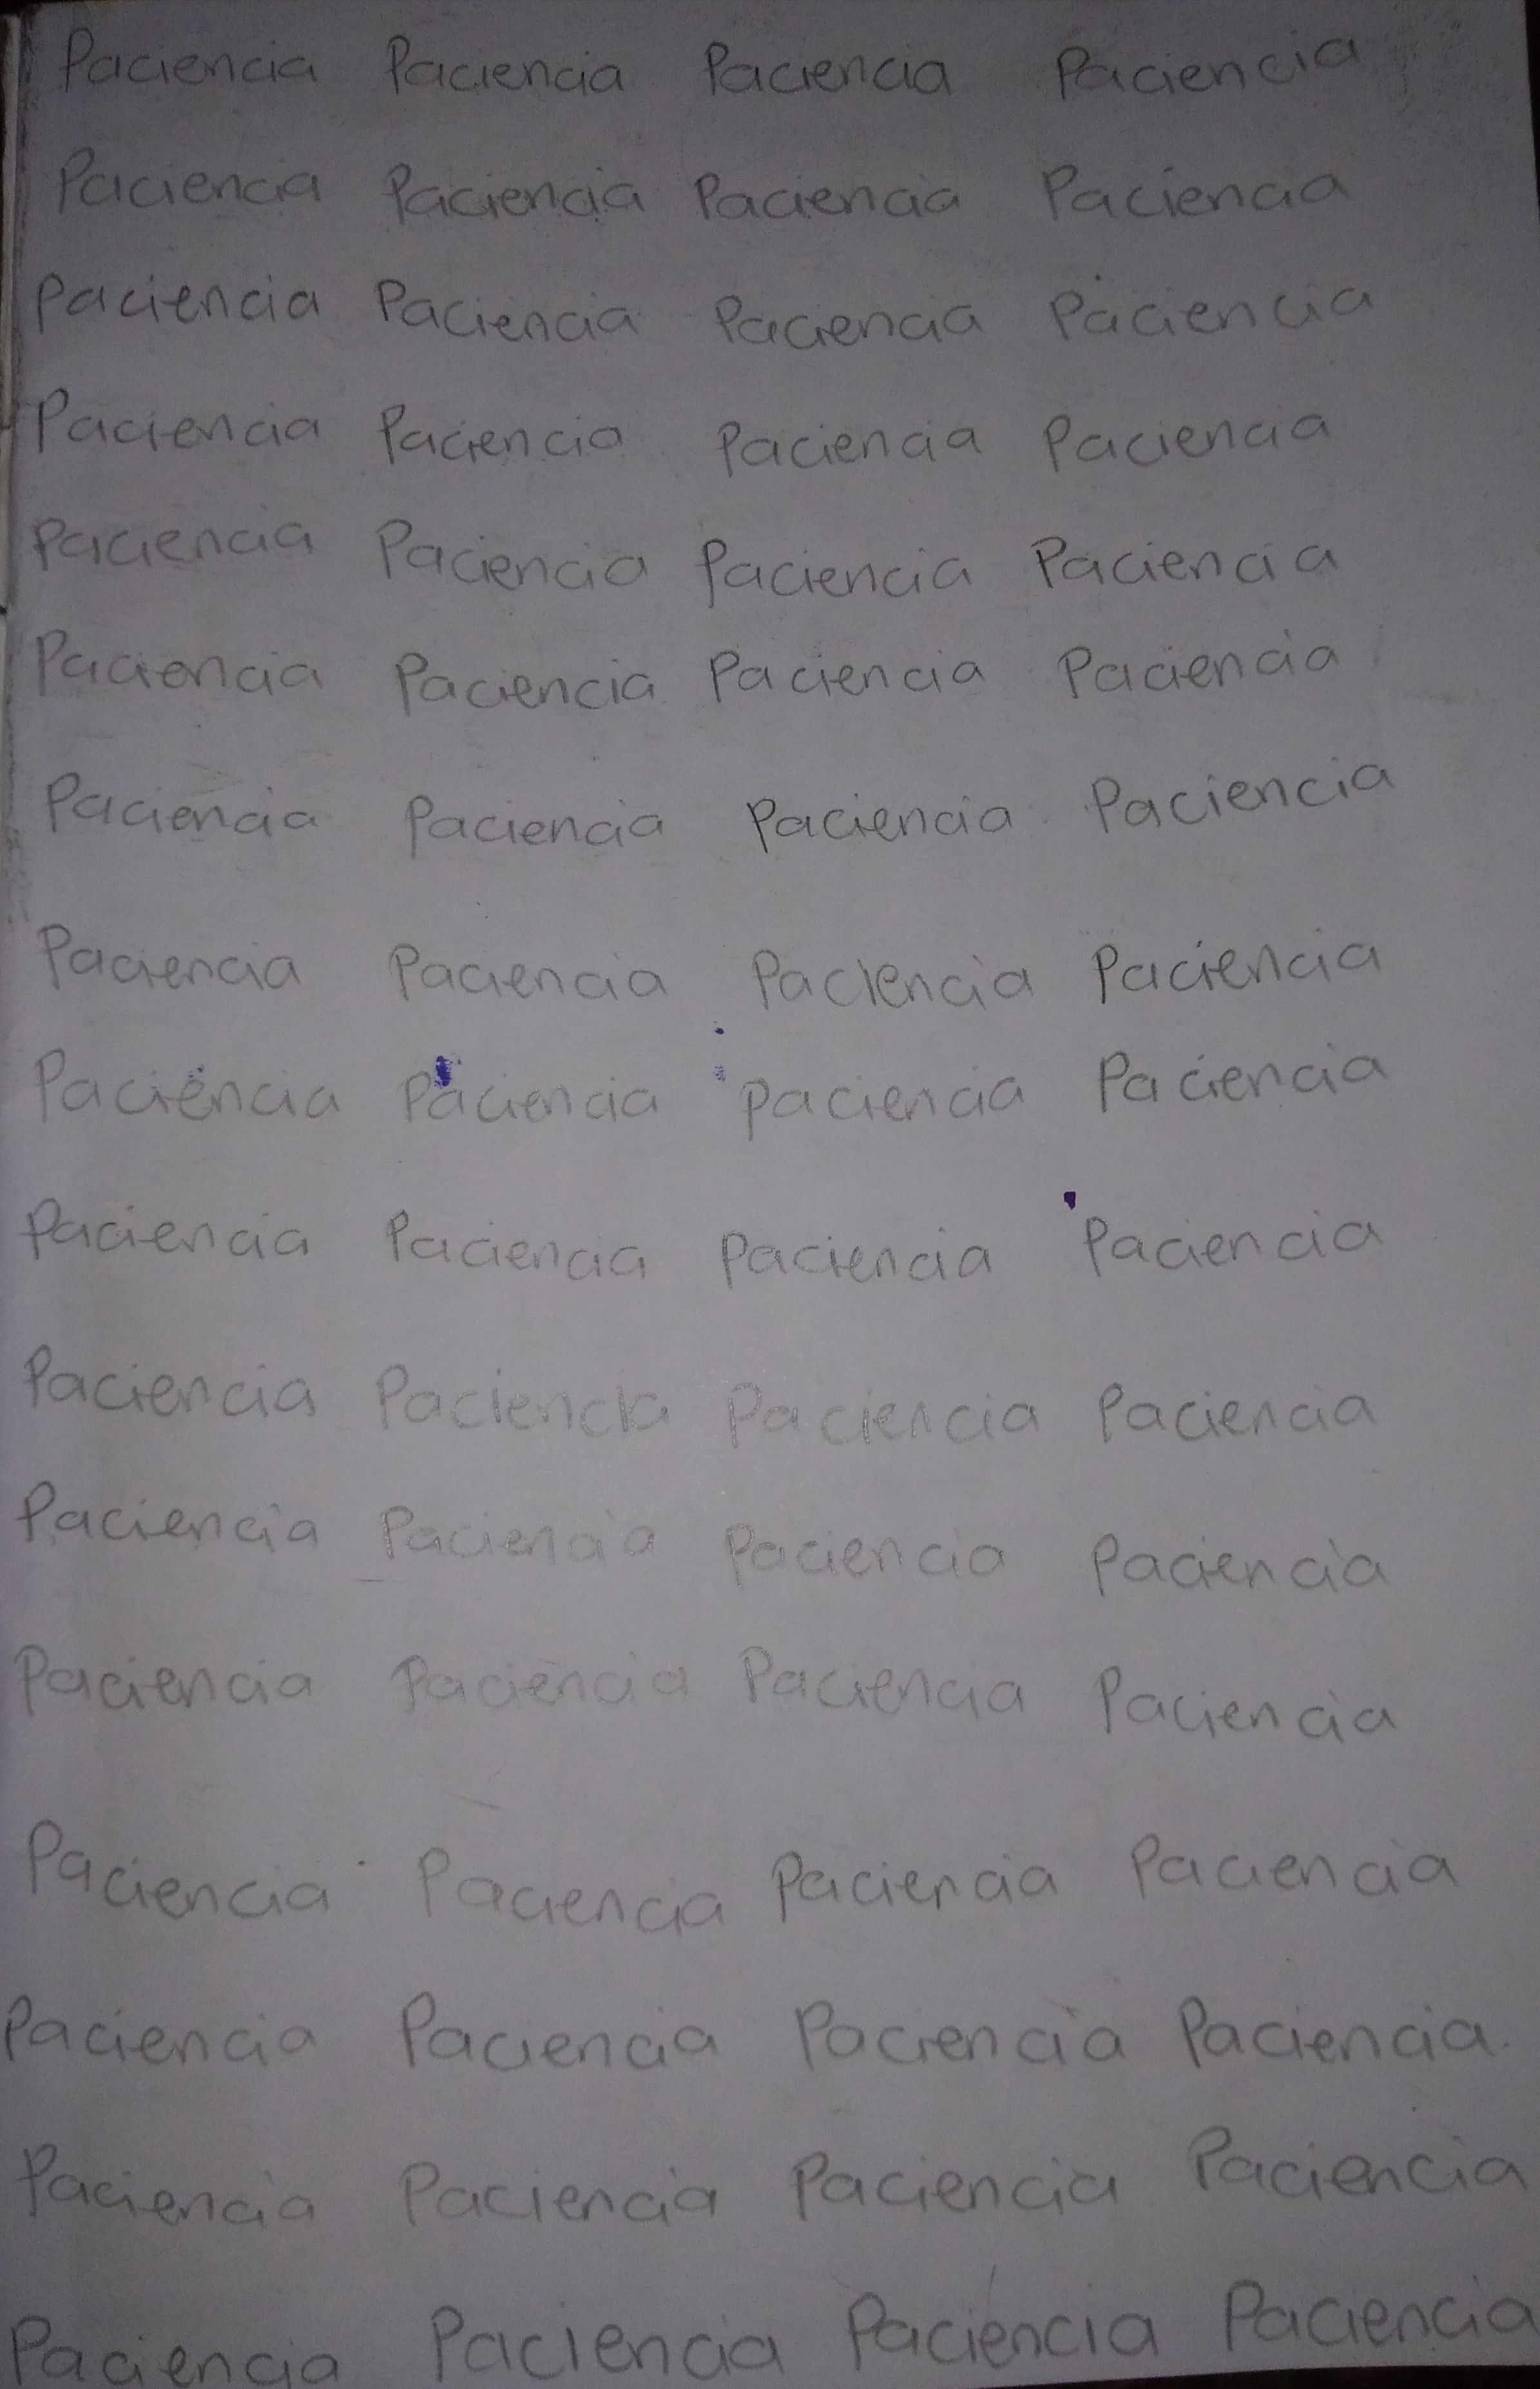 Paciencia Paciencia Paciencia Paciencia
Paciencia Paciencia Paciencia Paciencia
Paciencia Paciencia Paciencia Paciencia
Paciencia Paciencia Paciencia Paciencia
Paciencia Paciencia Paciencia Paciencia
Paciencia Paciencia Paciencia Paciencia
Paciencia Paciencia Paciencia Paciencia
Paciencia Paciencia Paciencia Paciencia
Paciencia Paciencia Paciencia Paciencia
Paciencia Paciencia Paciencia Paciencia
Paciencia Paciencia Paciencia Paciencia
Paciencia Paciencia Paciencia Paciencia
Paciencia Paciencia Paciencia Paciencia
Paciencia Paciencia Paciencia Paciencia
Paciencia Paciencia Paciencia Paciencia.
Paciencia Paciencia Paciencia Paciencia
Paciencia Paciencia Paciencia Paciencia